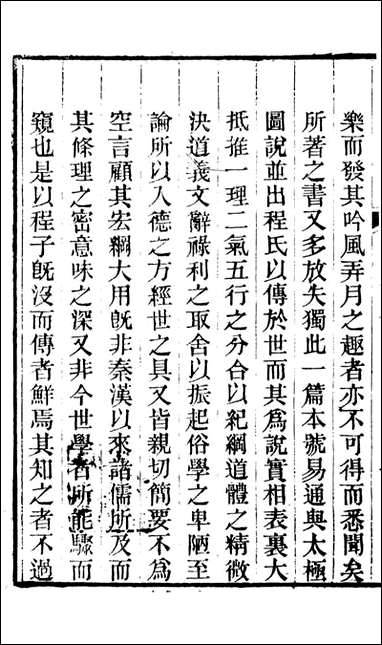 樂而發其吟風弄月之趣者亦不可得而悉聞矣
所著之書又多放失獨此一篇本號易通與太極
圖說並出程氏以傳於世而其爲說實相表裏大
抵推一理二氣五行之分合以紀綱道體之精微
決道義文辭祿利之取舍以振起俗學之卑陋至
論所以入德之方經世之具又皆親切簡要不爲
空言顧其宏綱大用旣非秦漢以來諸儒所及而
其條理之密意味之深又非今世學者所能驟而
窺也是以程子旣沒而傳者鮮焉其知之者不過